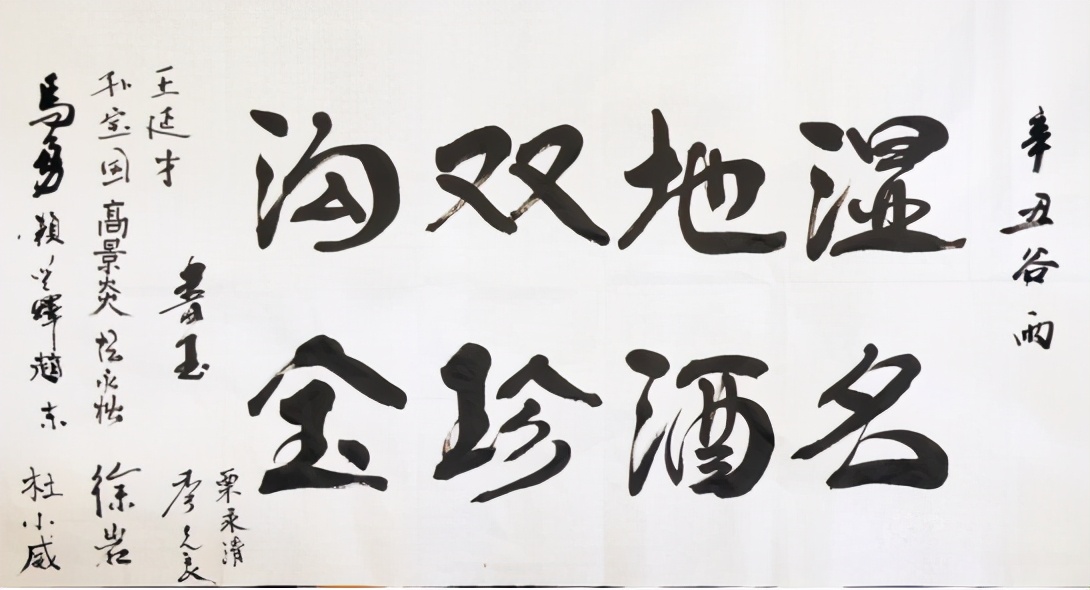 辛丑谷雨
湿地双沟
名酒珍宝
書玉
栗永清
季克良
王延才
孙宝国
高景炎
永松
徐岩
馬勇
賴登燡
趙东
杜小威